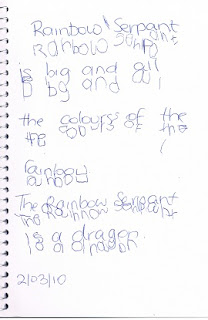 Rainbow Serpant
Rainbow Serp
is big and all
is big and
the colours of the
the the
rainbow
rainbow
The Rainbow Serpant
The Rainbow Serpant
is a dragon.
is a dragon
2/03/10